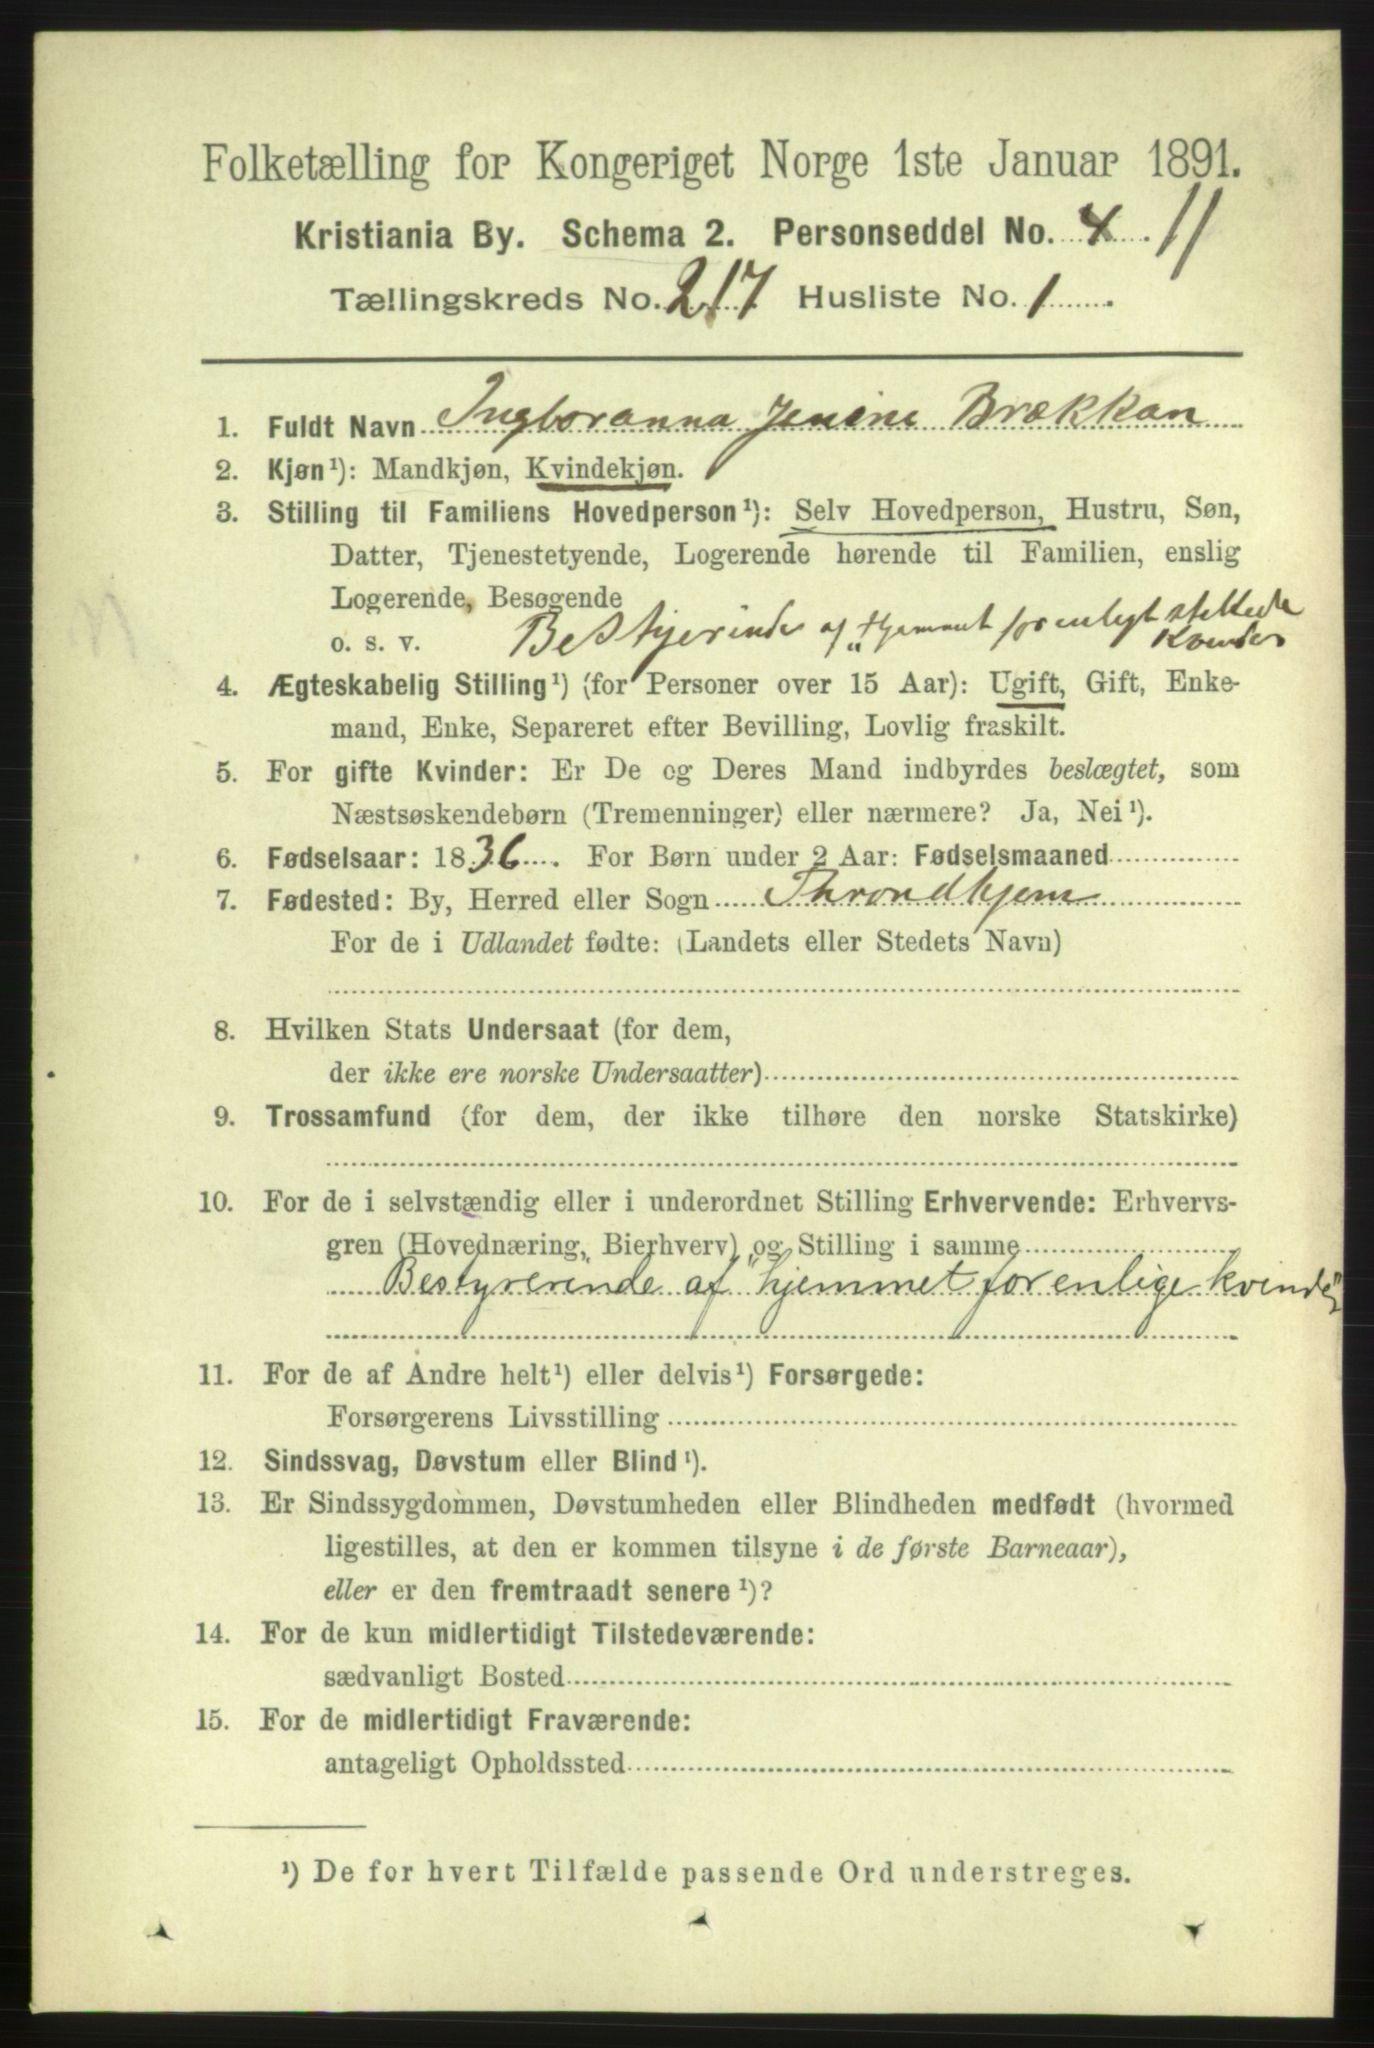 Folketælling for Kongeriget Norge 1ste Januar 1891.
Kristiania By. Schema 2. Personseddel No. 4 11
Tællingskreds No. 217 Husliste No. 1
1. Fuldt Navn Ingboranna Jenine Brækkan
2. Kjøn¹): Mandkjøn, Kvindekjøn.
3. Stilling til Familiens Hovedperson¹): Selv Hovedperson, Hustru, Søn,
Datter, Tjenestetyende, Logerende hørende til Familien, enslig
Logerende, Besøgende
o. s. v. Bestyerinde af "Hjemmet for enligt stillede
Kvinder
4. Ægteskabelig Stilling¹) (for Personer over 15 Aar): Ugift, Gift, Enke-
mand, Enke, Separeret efter Bevilling, Lovlig fraskilt.
5. For gifte Kvinder: Er De og Deres Mand indbyrdes beslægtet, som
Næstsøskendebørn (Tremenninger) eller nærmere? Ja, Nei¹).
6. Fødselsaar: 1836. For Børn under 2 Aar: Fødselsmaaned
7. Fødested: By, Herred eller Sogn Throndhjem
For de i Udlandet fødte: (Landets eller Stedets Navn)
8. Hvilken Stats Undersaat (for dem,
der ikke ere norske Undersaatter)
9. Trossamfund (for dem, der ikke tilhøre den norske Statskirke)
10. For de i selvstændig eller i underordnet Stilling Erhvervende: Erhvervs-
gren (Hovednæring, Bierhverv) og Stilling i samme
Bestyrerinde af "hjemmet for enlige kvinder"
11. For de af Andre helt¹) eller delvis¹) Forsørgede:
Forsørgerens Livsstilling
12. Sindssvag, Døvstum eller Blind¹).
13. Er Sindssygdommen, Døvstumheden eller Blindheden medfødt (hvormed
ligestilles, at den er kommen tilsyne i de første Barneaar),
eller er den fremtraadt senere¹)?
14. For de kun midlertidigt Tilstedeværende:
sædvanligt Bosted
15. For de midlertidigt Fraværende:
antageligt Opholdssted
¹) De for hvert Tilfælde passende Ord understreges.